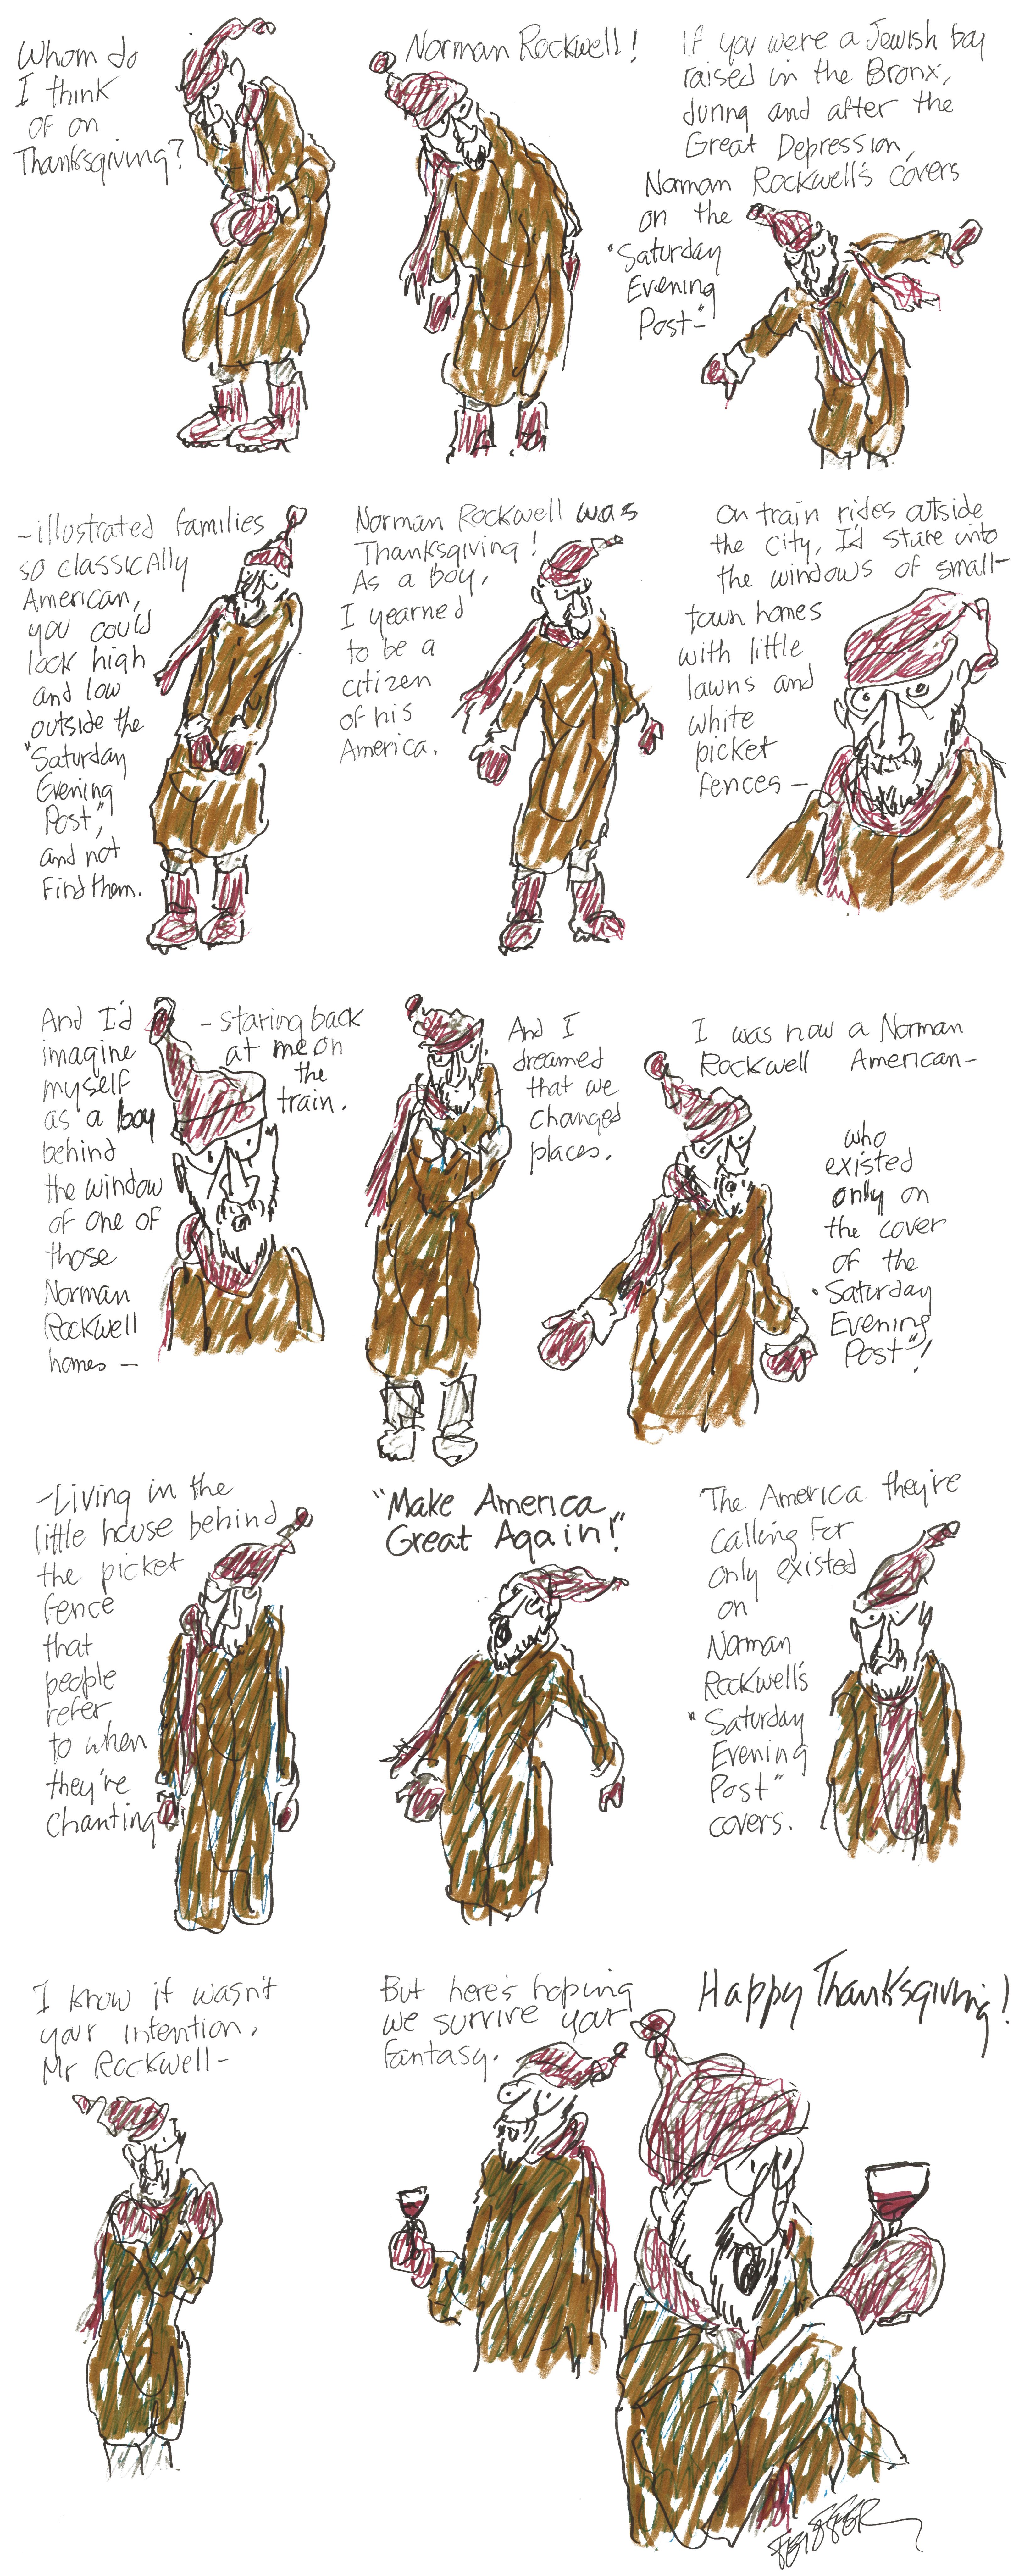 Whom do
I think
of on
Thanksgiving?
Norman Rockwell!
If you were a Jewish boy
raised in the Bronx,
during and after the
Great Depression,
Norman Rockwell's covers
on the
"Saturday
Evening
Post"-
-illustrated families
so classically
American,
you could
look high
and low
outside the
"Saturday
Evening
Post",
and not
find them.
Norman Rockwell was
Thanksgiving!
As a boy,
I yearned
to be a
citizen
of his
America.
On train rides outside
the city, I'd stare into
the windows of small-
town homes
with little
lawns and
white
picket
fences-
And I'd
imagine
myself
as a boy
behind
the window
of one of
those
Norman
Rockwell
homes-
-staring back
at me on
the
train.
And I
dreamed
that we
changed
places.
I was now a Norman
Rockwell American-
who
existed
only on
the cover
of the
"Saturday
Evening
Post"!
-Living in the
little house behind
the picket
fence
that
people
refer
to when
they're
chanting
"Make America
Great Again!"
The America they're
calling for
only existed
on
Norman
Rockwell's
"Saturday
Evening
Post"
covers.
I know it wasn't
your intention,
Mr Rockwell-
But here's hoping
we survive your
fantasy.
Happy Thanksgiving!
FEIFFER